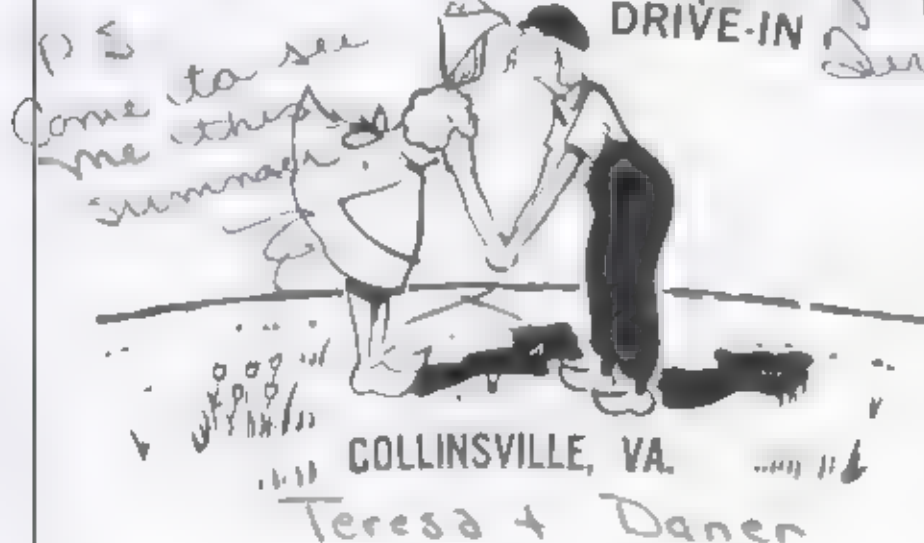 DRIVE-IN
P S
Come to see
me this
summer
COLLINSVILLE, VA.
Teresa + Daner